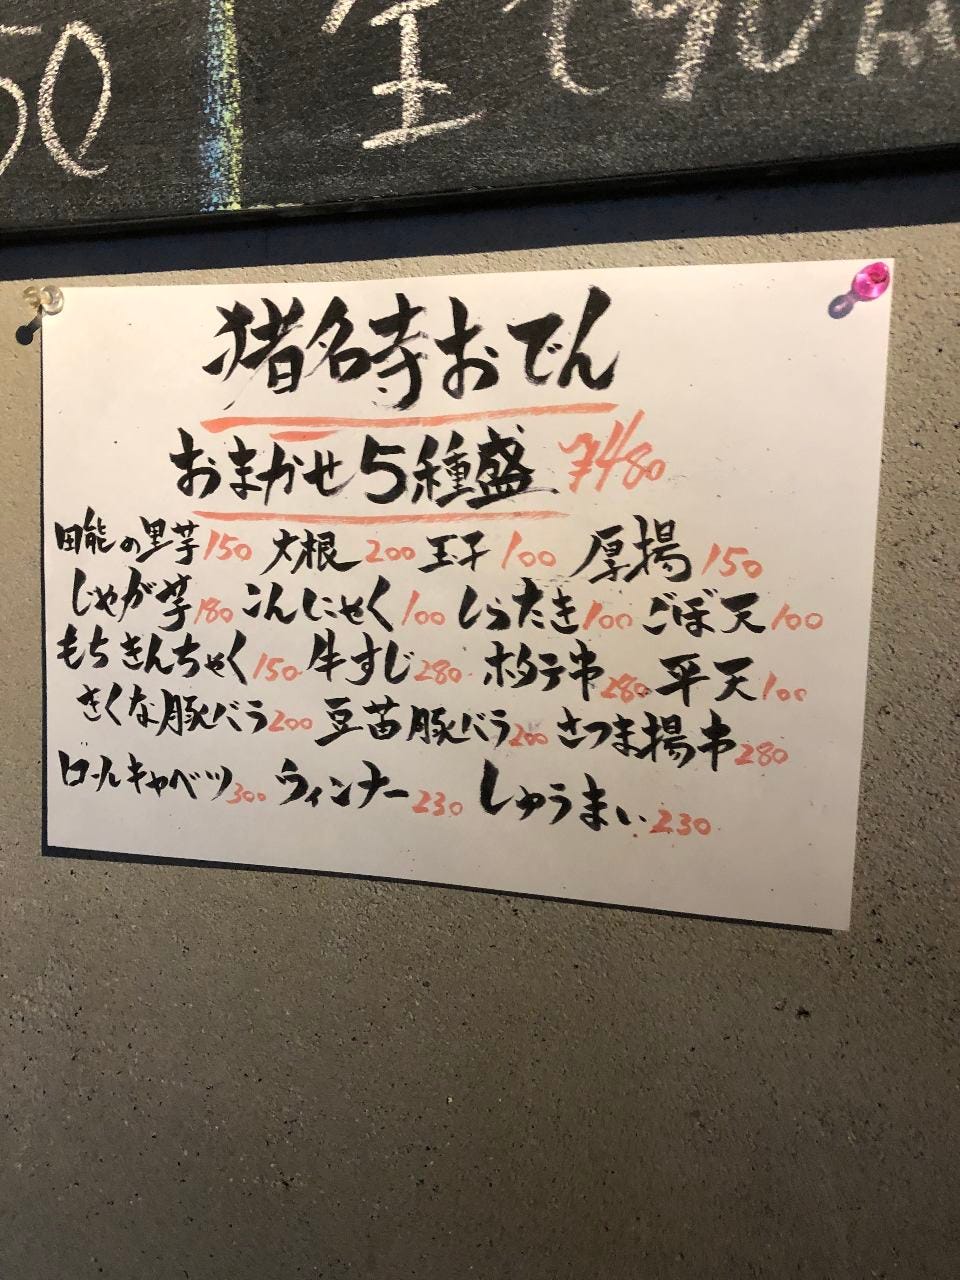 50
猪名寺おでん
おまかせ5種盛 ¥480
田能の里芋150 大根200 玉子100 厚揚150
じゃが芋180 こんにゃく100 しらたき100 ごぼ天100
もちきんちゃく150 牛すじ280 ホタテ串280 平天100
きくな豚バラ200 豆苗豚バラ200 さつま揚串280
ロールキャベツ300 ウィンナー230 しゅうまい230